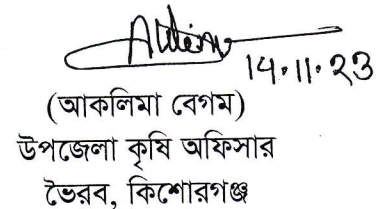 14.11.23
(আকলিমা বেগম)
উপজেলা কৃষি অফিসার
ভৈরব, কিশোরগঞ্জ